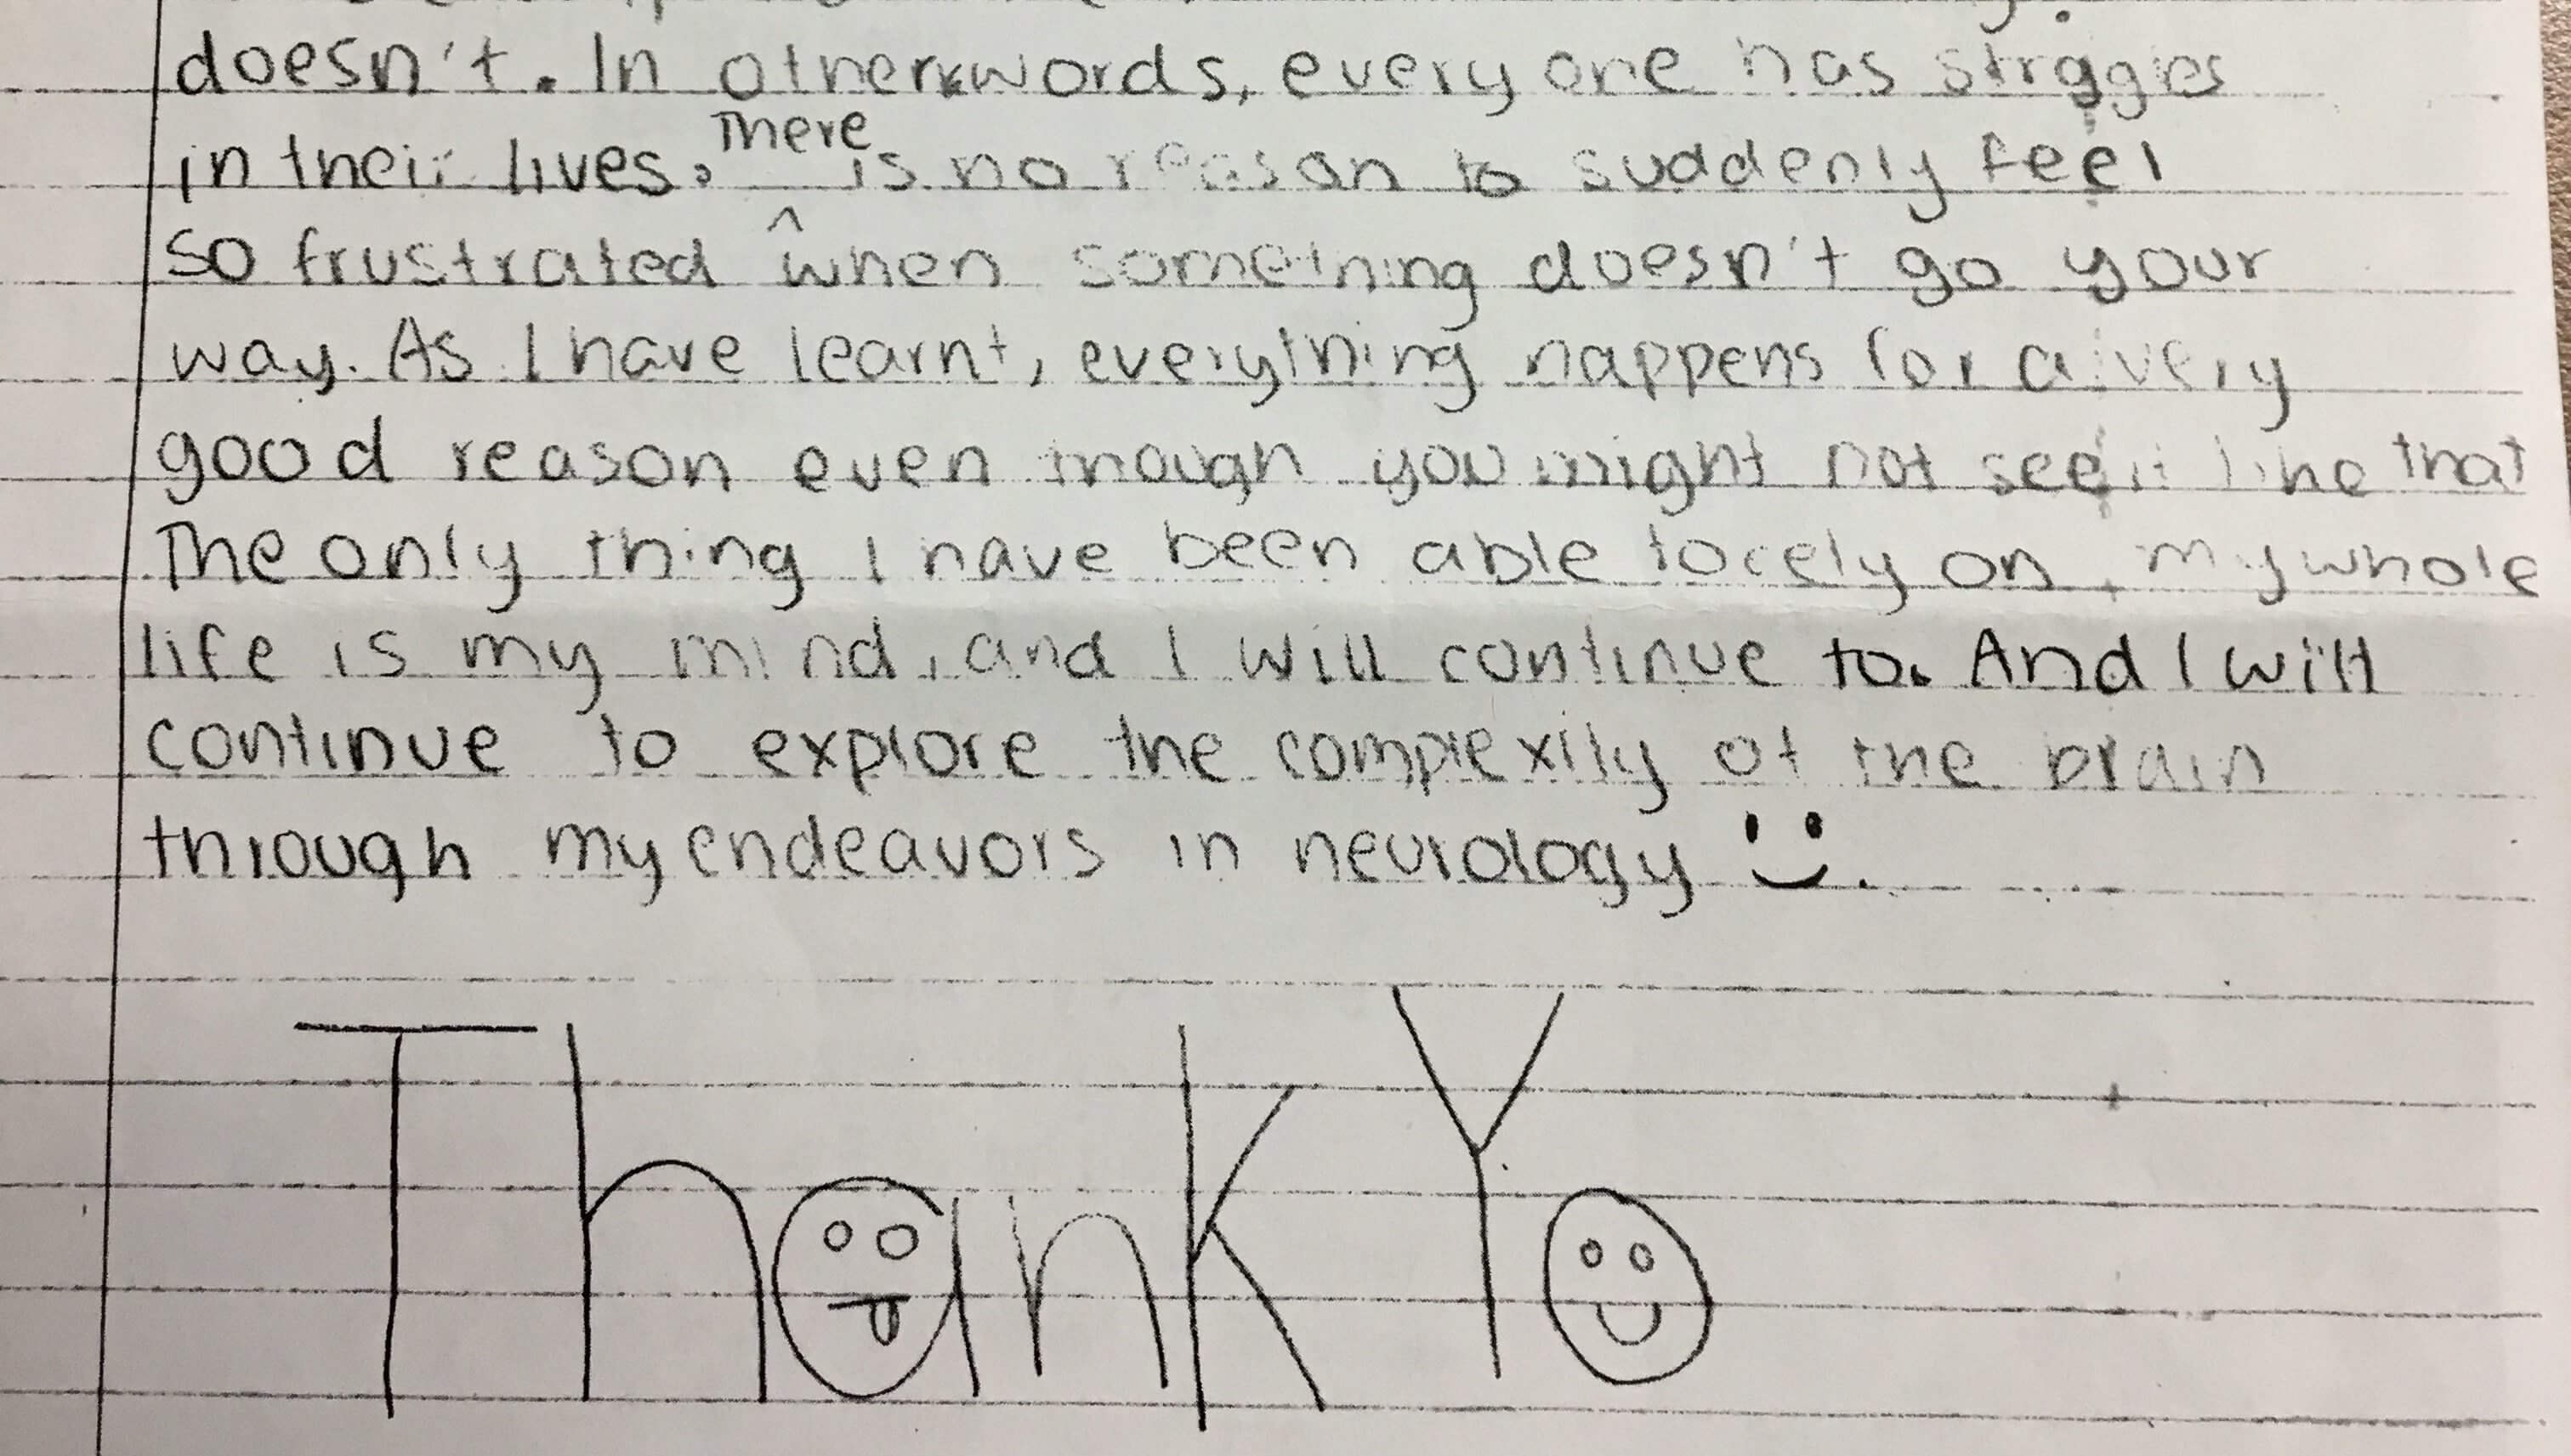 doesn't. In otherwords, every one has strggles
in their lives. There is no reason to suddenly feel
so frustrated when something doesn't go your
way. As I have learnt, everything happens for a very
good reason even though you might not see it like that
The only thing I have been able to rely on, my whole
life is my mind, and I will continue to. And I will
continue to explore the complexity of the brain
through my endeavors in neurology :).
Thank Yo